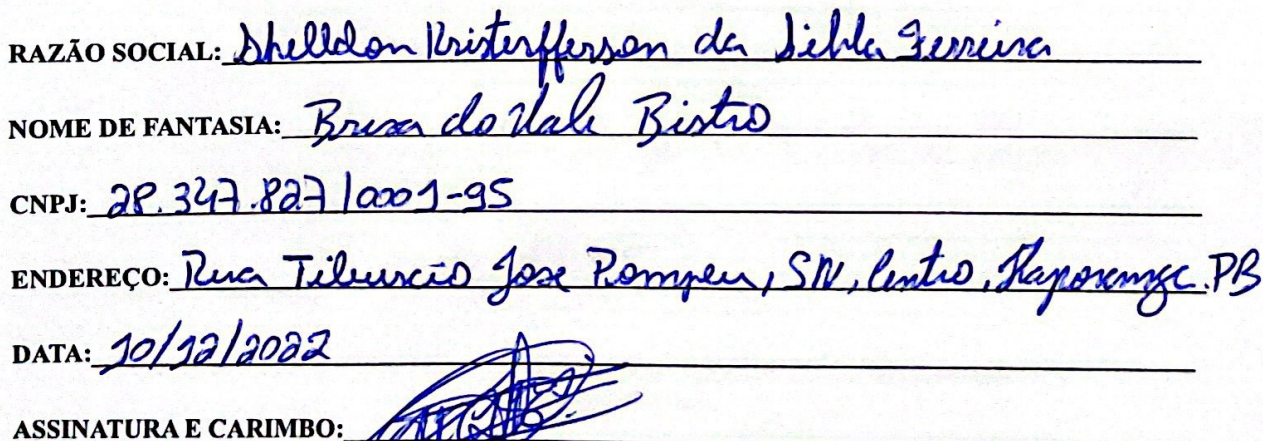 RAZÃO SOCIAL: Shelldon Kristerfferson da Silva Ferreira
NOME DE FANTASIA: Brisa do Vale Bistro
CNPJ: 28.347.827/0001-95
ENDEREÇO: Rua Tiburcio Jose Pompeu, SN, Centro, PB
DATA: 10/12/2022
ASSINATURA E CARIMBO: